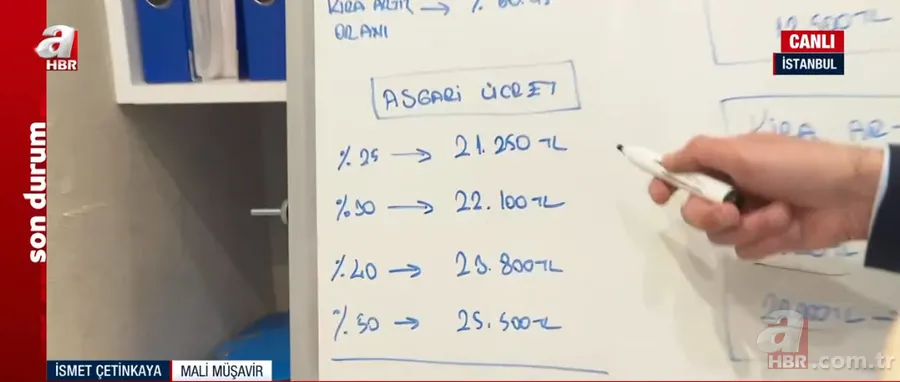 a
HBR
CANLI
İSTANBUL
son durum
KİRA ARTIŞ → %
ORANI
ASGARİ ÜCRET
%25 → 21.250 TL
%30 → 22.100 TL
%40 → 23.800 TL
%50 → 25.500 TL
KİRA AR
İSMET ÇETİNKAYA MALİ MÜŞAVİR
a
HBR.com.tr